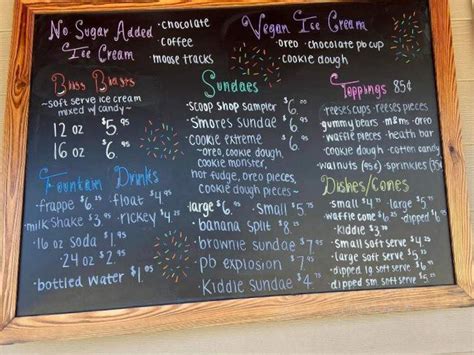 No Sugar Added
Ice Cream
• chocolate
• coffee
• moose tracks
Vegan Ice Cream
• oreo • chocolate pb cup
• cookie dough
~ soft serve ice cream
mixed w/ candy ~
12 oz $5.95
16 oz $6.95
Fountain Drinks
• frappe $6.25 • float $4.95
• milk shake $3.95 • rickey $4.25
• 16 oz soda $1.95
• 24 oz $2.95
• bottled water $1.95
Sundaes
• Scoop Shop sampler $6.
• S'mores sundae $6.
• Cookie extreme $6.
~ oreo, cookie dough,
cookie monster,
hot fudge, oreo pieces,
cookie dough pieces
• large $6. • Small $5.
• banana split $8.
• brownie sundae $7.95
• pb explosion $7.
• Kiddie sundae $4.
Toppings 85¢
• reeses cups • reeses pieces
• gummy bears • m&ms • oreo
• waffle pieces • heath bar
• cookie dough • cotton candy
• walnuts (95¢) • sprinkles (35¢)
Dishes/Cones
• small $4. • large $5.
• waffle cone $6. • dipped $6.
• kiddie $3.
• Small soft serve $4.25
• large soft serve $5.
• dipped lg soft serve $6.
• dipped sm soft serve $5.